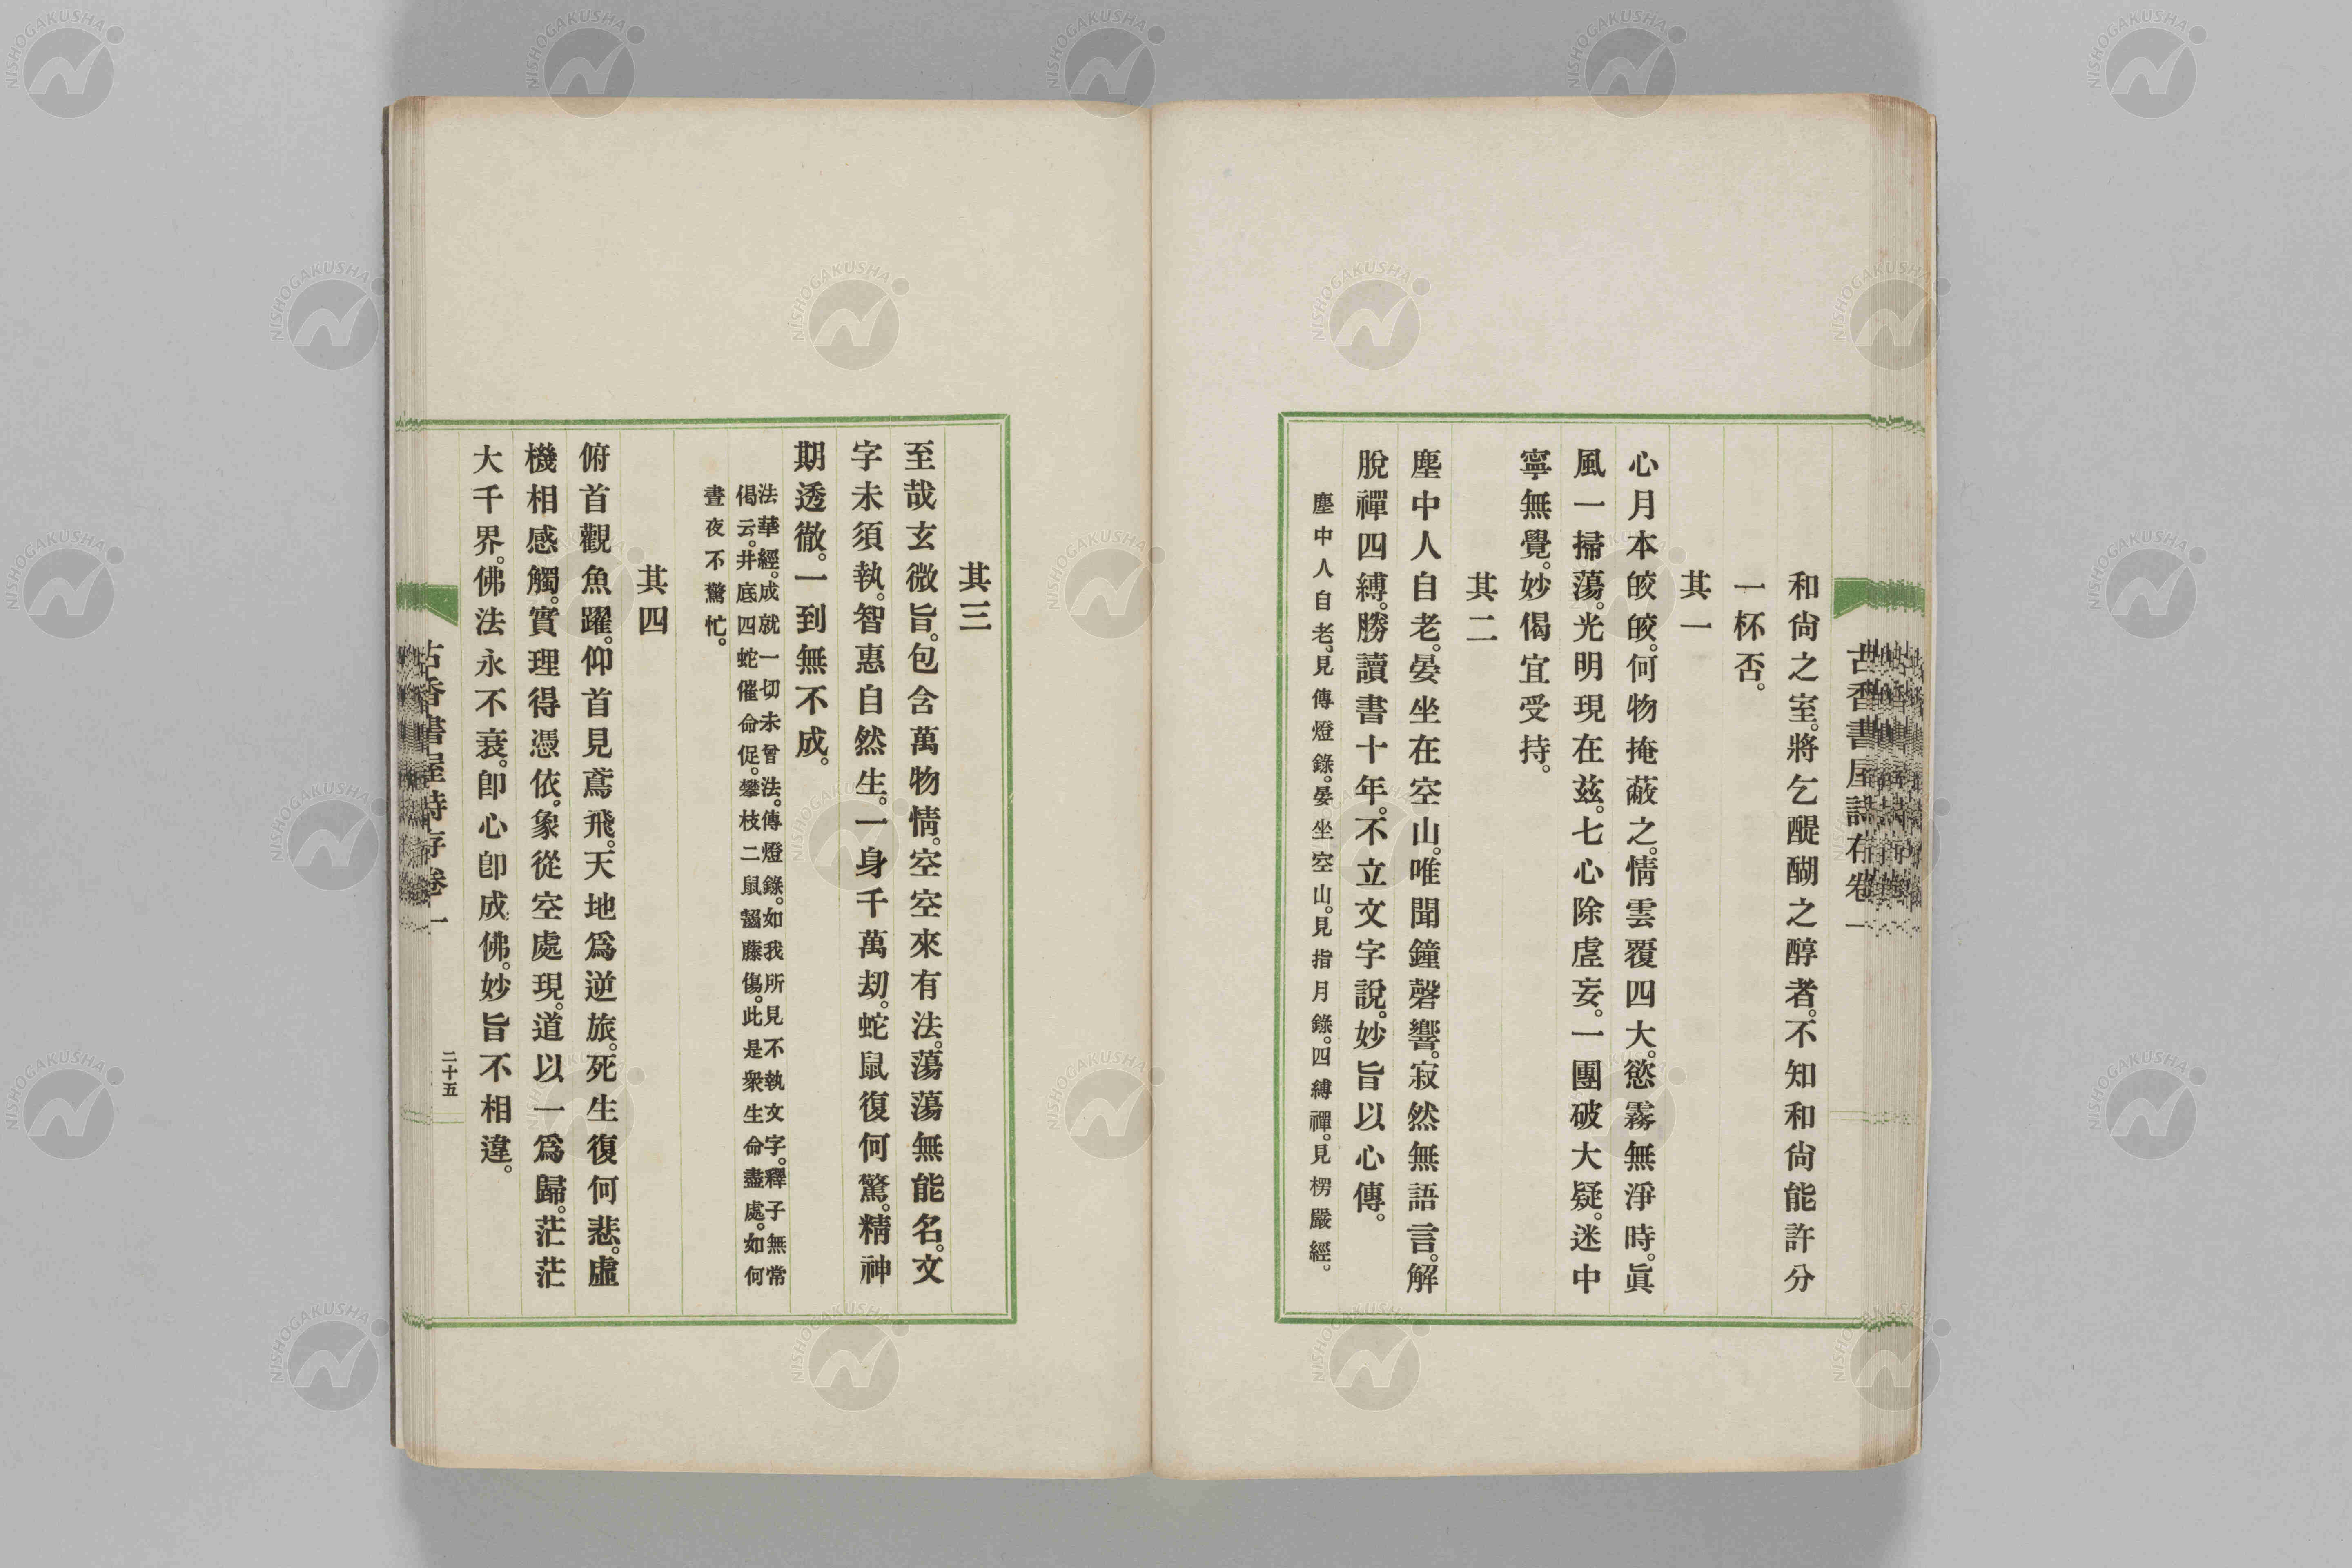 古香書屋詩存卷一
和尙之室。將乞醍醐之醇者。不知和尙能許分
一杯否。
其一
心月本皎皎。何物掩蔽之。情雲覆四大。慾霧無淨時。眞
風一掃蕩。光明現在茲。七心除虛妄。一團破大疑。迷中
寧無覺。妙偈宜受持。
其二
塵中人自老。晏坐在空山。唯聞鐘磬響。寂然無語言。解
脫禪四縛。勝讀書十年。不立文字說。妙旨以心傳。
塵中人自老。見傳燈錄。晏坐空山。見指月錄。四縛禪。見楞嚴經。
其三
至哉玄微旨。包含萬物情。空空來有法。蕩蕩無能名。文
字未須執。智惠自然生。一身千萬劫。蛇鼠復何驚。精神
期透徹。一到無不成。
法華經。成就一切未曾法。傳燈錄。如我所見不執文字。釋子無常
偈云。井底四蛇催命促。攀枝二鼠齧藤傷。此是衆生命盡處。如何
晝夜不驚忙。
其四
俯首觀魚躍。仰首見鳶飛。天地爲逆旅。死生復何悲。虛
機相感觸。實理得憑依。象從空處現。道以一爲歸。茫茫
大千界。佛法永不衰。卽心卽成佛。妙旨不相違。
古香書屋詩存卷一
二十五
NISHOGAKUSHA